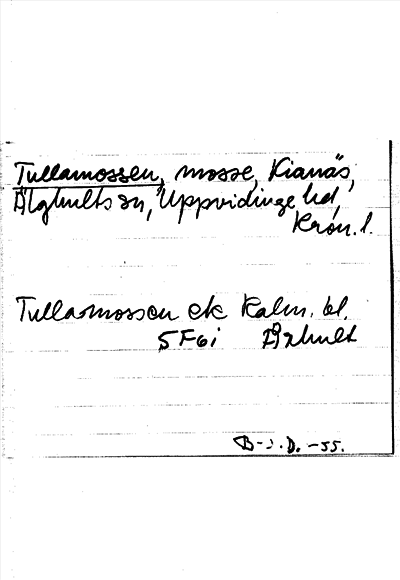 Tullamossen, mosse, Kianäs,
Älghults sn, Uppvidinge hd,
Kron. l.
Tullamossen ek Kalm. bl.
5F6i Älghult
B-J.D. -55.